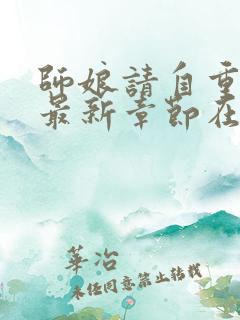 師娘請自重
最新章節在
華冶
未任同意禁止轉載